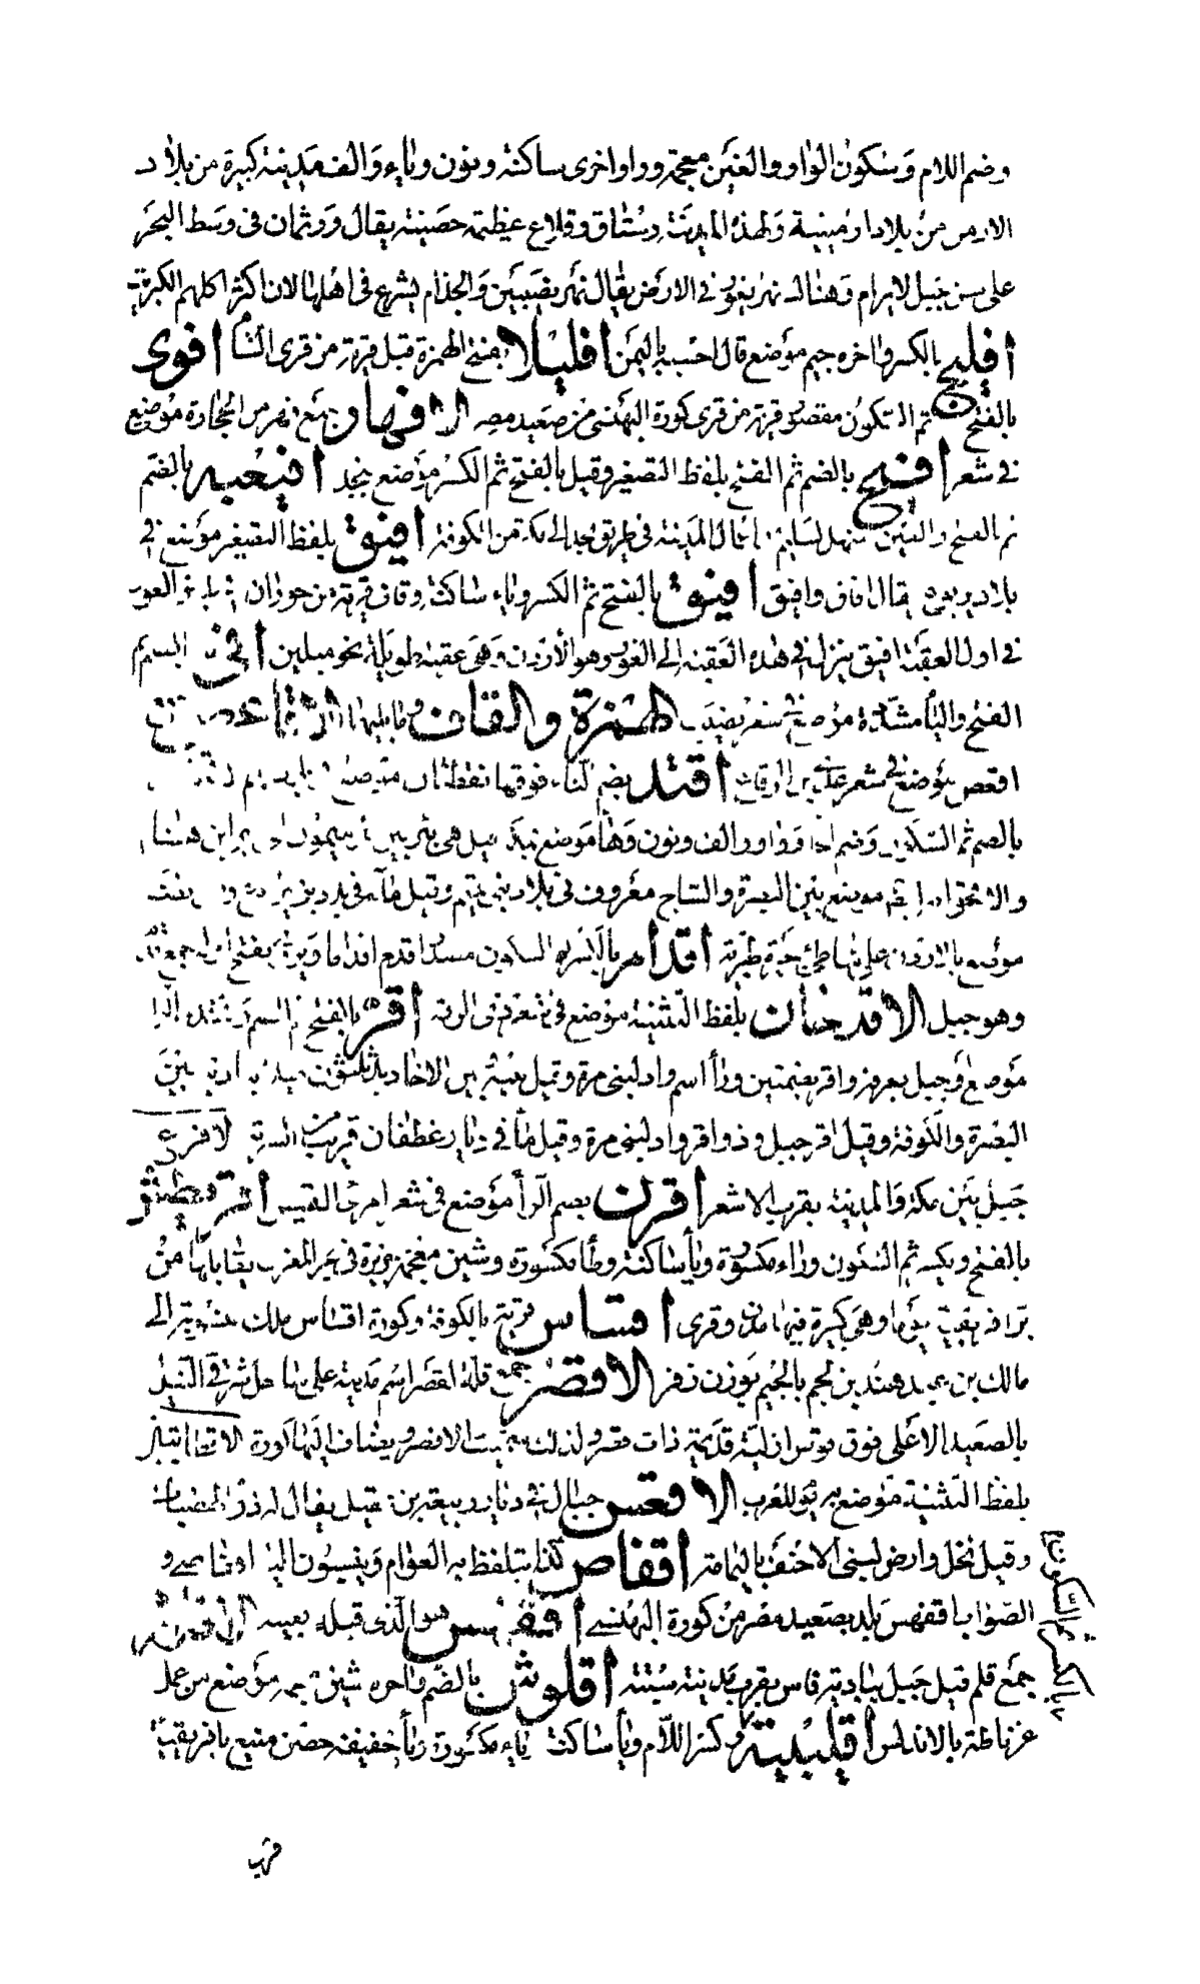 وضم اللام وسكون الواو والغين معجمة وواو اخرى ساكنة ونون وياء والف مدينة كبيرة من بلاد
الارمن من بلاد ارمينية ولهذه المدينة رستاق وقلاع عظيمة حصينة يقال وورثمان في وسط البحر
على سن جبل لابرام وهناك نهر يغور في الارض يقال نهر نصيبين والجذام يشرع في اهلها لان اكثر اكلهم الكرنب
افليج بالكسر واخره جيم موضع قال احسبه باليمن افليلا بفتح الهمزة قيل قرية من قرى الشام افوى
بالفتح ثم السكون مقصور قرية من قرى كورة البهنسى من صعيد مصر الافهار جمع فهر من الحجارة موضع
في شعر افيح بالضم ثم الفتح بلفظ التصغير وقيل بالفتح ثم الكسر موضع بنجد افيعية بالضم
ثم الفتح والعين منهل لسليم من اعمال المدينة في طريق نجد الى مكة من الكوفة افيق بلفظ التصغير موضع في
بلاد يربوع يقال افاق وافيق افيق بالفتح ثم الكسر وياء ساكنة وقاف قرية من حوران في طريق الغور
في اول العقبة افيق ينزل في هذه العقبة الى الغور وهو الاردن وهى عقبة طويلة نحو ميلين افى بالضم ثم
الفتح واليا مشددة موضع في شعر نصيب الهمزة والقاف وما يليهما الاقاعص
اقعص موضع في شعر عدي بن الرقاع اقتد بضم التاء فوقها نقطتان
بالضم ثم السكون وضم الحا وواو والف ونون وهاء موضع
والاقحوانة موضع بين البصرة والنباج معروف في بلاد بني تميم وقيل ماء في بلاد بني يربوع
موضع بالاردن على شاطئ بحيرة طبرية اقدام بالكسر ثم السكون مصدر اقدم اقداما ويروى بفتح اوله جمع قدم
وهو جبل الاقدحان بلفظ التثنية موضع في شعر ذى الرمة اقر بالفتح ثم الضم وتشديد الرا
موضع او جبل بعرفة واقر بضمتين ورأ اسم واد لبنى مرة وقيل
البصرة والكوفة وقيل اقر جبل وذو اقر واد لبنى مرة وقيل ماء في ديار غطفان قريب من الشربة الاقرع
جبل بين مكة والمدينة بقرب الاشعر اقرن بضم الرأ موضع في شعر امرئ القيس اقريطش
بالفتح ويكسر ثم السكون وراء مكسورة ويأ ساكنة وطأ مكسورة وشين معجمة جزيرة في بحر المغرب يقابلها من
بر افريقية لوبيا وهى كبيرة فيها مدن وقرى اقساس قرية بالكوفة وكورة اقساس مالك منسوبة الى
مالك بن عبد هند بن لجم بالجيم بوزن زفر الاقصر جمع قلة لقصر اسم مدينة على شاطئ شرقى النيل
بالصعيد الاعلى فوق قوص ازلية قديمة ذات قصور ولذلك سميت الاقصر ويضاف اليها كورة الاقطانتين
بلفظ التثنية موضع الاقعس جبال في ديار ربيعة بن عقيل يقال له ذو الهضبات
وقيل نخل وارض لبنى الاحنف باليمامة اقفاص كذا يتلفظ به العوام وينسبون اليه اقفاصى و
الصواب اقفهس بلد بصعيد مصر من كورة البهنسى اقفهس هو الذى قبله بعينه
جمع قلم قيل جبل ببادية فاس بقرب مدينة سبتة اقلوش بالضم واخره شين معجمة موضع من عمل
غرناطة بالاندلس اقليبية وكسر اللام ويأ ساكنة وباء مكسورة ويأ خفيفة حصن منيع بافريقية
بالكسر ثم السكون
قرب